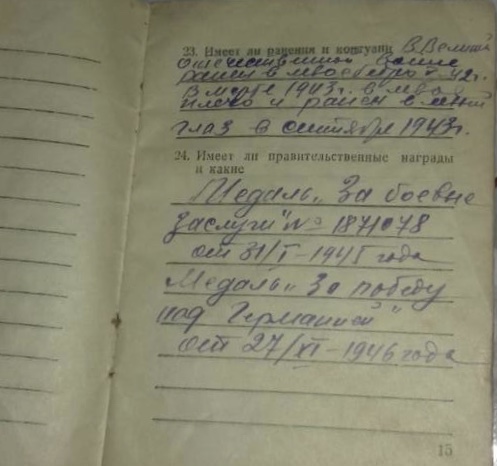 23. Имеет ли ранения и контузии В Великой
отечественной войне
ранен в 42г.
В марте 1943г. в левое
плечо и ранен в левый
глаз в сентябре 1943г.
24. Имеет ли правительственные награды
и какие
Медаль „За боевые
заслуги" № 1871078
от 31/I-1945 года
Медаль „За победу
над Германией"
от 27/XI-1946 года
15